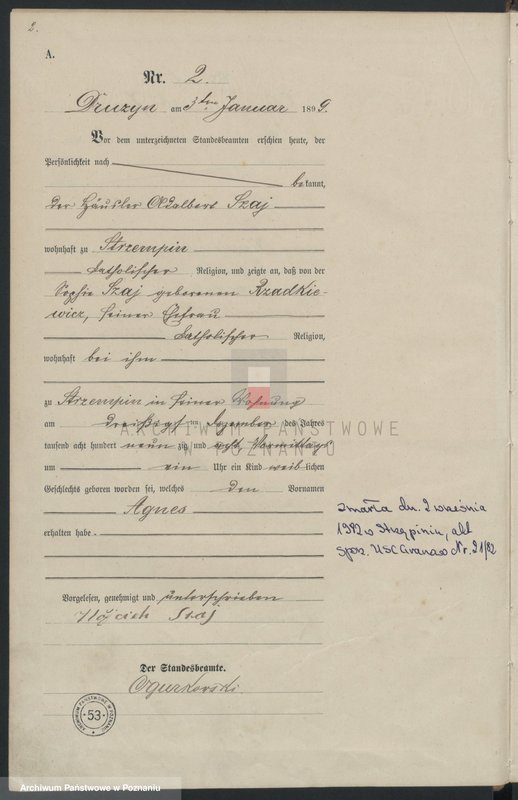 2.
A.
Nr. 2.
Druzyn am 3ten Januar 1899.
Vor dem unterzeichneten Standesbeamten erschien heute, der
Persönlichkeit nach
bekannt,
der Häusler Adalbert Szaj
wohnhaft zu Strzempin
katholischer Religion, und zeigte an, daß von der
Sophie Szaj geborenen Rzadkie-
wicz, seiner Ehefrau
katholischer Religion,
wohnhaft bei ihm
zu Strzempin in seiner Wohnung
am dreißigsten Dezember des Jahres
tausend acht hundert neun zig und acht Vormittags
um ein Uhr ein Kind weiblichen
Geschlechts geboren worden sei, welches den Vornamen
Agnes
erhalten habe.
zmarła dn. 2 września
1982 w Strzępiniu, akt
USC Granowo Nr. 21/82
Vorgelesen, genehmigt und unterschrieben
Szaj
Der Standesbeamte.
Ogurkowski
ARCHIWUM PAŃSTWOWE W POZNANIU
53
ARCHIWUM PAŃSTWOWE
W POZNANIU
Archiwum Państwowe w Poznaniu